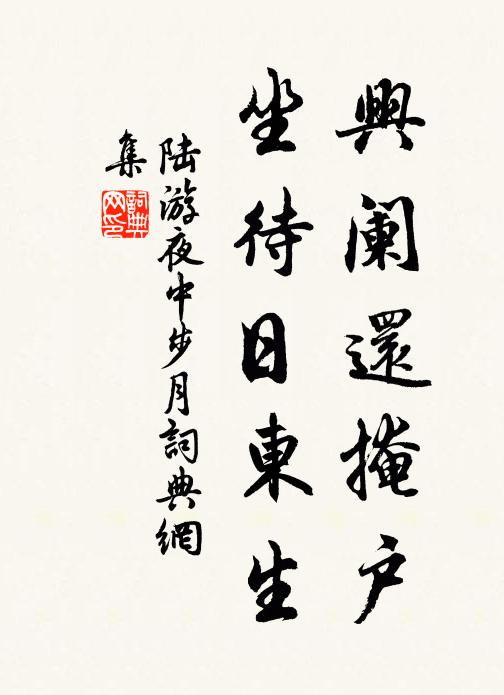 興阑還掩户
坐待日東生
陆游夜中步月詞典網
集
詞典网印